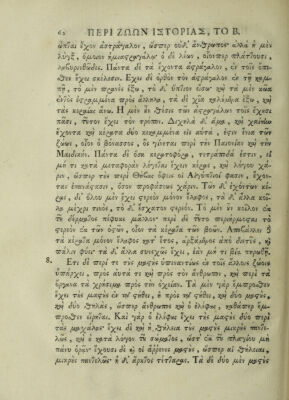 62 ΠΕΡΙ ΖΩΩΝ ΙΣΤΟΡΙΑΣ, ΤΟ Β.
ἔχον ἀστράγαλον, ὥσπερ οὐδ' ἄνθρωπος· ἀλλὰ ἡ μὲν
λὺγξ, ὅμοιον ἡμιαστραγαλίῳ· ὁ δὲ λέων, οἷόνπερ πλάττουσι,
λαβυρινθώδη. Πάντα δὲ τὰ ἔχοντα ἀστράγαλον, ἐν τοῖς ὄπι-
σθεν ἔχει σκέλεσιν. Ἔχει δὲ ὀρθὸν τὸν ἀστράγαλον ἐν τῇ καμ-
πῇ, τὸ μὲν πρανὲς ἔξω, τὸ δ' ὕπτιον εἴσω· καὶ τὰ μὲν κῶα
ἐντὸς ἐστραμμένα πρὸς ἄλληλα, τὰ δὲ χῖα καλούμενα ἔξω, καὶ
τὰς κεραίας ἄνω. Ἡ μὲν οὖν θέσις τῶν ἀστραγάλων τοῖς ἔχουσι
πᾶσι, τοῦτον ἔχει τὸν τρόπον. Διχαλὰ δ' ἅμα, καὶ χαίτην
ἔχοντα καὶ κέρατα δύο κεκαμμένα εἰς αὑτά, ἐστὶν ἔνια τῶν
ζώων, οἷον ὁ βόνασος, ὃς γίνεται περὶ τὴν Παιονίαν καὶ τὴν
Μαιδικήν. Πάντα δὲ ὅσα κερατοφόρα, τετράποδά ἐστι, εἰ
μή τι κατὰ μεταφορὰν λέγεται ἔχειν κέρας, καὶ λόγου χά-
ριν, ὥσπερ τοὺς περὶ Θήβας ὄφεις οἱ Αἰγύπτιοί φασιν, ἔχον-
τας ἐπανάστασιν, ὅσον προφάσεως χάριν. Τῶν δ' ἐχόντων κέρας,
δι' ὅλου μὲν ἔχει στερεὸν μόνον ἔλαφος, τὰ δ' ἄλλα κοῖ-
λα μέχρι τινός, τὸ δ' ἔσχατον στερεόν. Τὸ μὲν οὖν κοῖλον ἐκ
τοῦ δέρματος πέφυκε μᾶλλον· περὶ δὲ τοῦτο περιήρμοσται τὸ
στερεὸν ἐκ τῶν ὀστῶν, οἷον τὰ κέρατα τῶν βοῶν. Ἀποβάλλει δ
τὰ κέρατα μόνον ἔλαφος κατ' ἔτος, ἀρξάμενος ἀπὸ διετοῦς, καὶ
πάλιν φύει· τὰ δ' ἄλλα συνεχῶς ἔχει, ἐὰν μή τι βίᾳ πηρωθῇ.
8. Ἔτι δὲ περί τε τοὺς μαστοὺς ὑπεναντίως ἐν τοῖς ἄλλοις ζώοις
ὑπάρχει, πρὸς αὑτά τε καὶ πρὸς τὸν ἄνθρωπον, καὶ περὶ τὰ
ὄργανα τὰ χρήσιμα πρὸς τὴν ὀχείαν. Τὰ μὲν γὰρ ἔμπροσθεν
ἔχει τοὺς μαστοὺς ἐν τῷ στήθει, ἢ πρὸς τῷ στήθει, καὶ δύο μαστούς,
καὶ δύο θηλάς, ὥσπερ ἄνθρωπος καὶ ὁ ἐλέφας, καθάπερ ἔμ-
προσθεν εἴρηται. Καὶ γὰρ ὁ ἐλέφας ἔχει τοὺς μαστοὺς δύο περὶ
τὰς μασχάλας· ἔχει δὲ καὶ ἡ θήλεια τοὺς μαστοὺς μικροὺς παντε-
λῶς, καὶ οὐ κατὰ λόγον τοῦ σώματος, ὥστ' ἐκ τοῦ πλαγίου μὴ
πάνυ ὁρᾶν· ἔχουσι δὲ καὶ οἱ ἄρρενες μαστούς, ὥσπερ αἱ θήλειαι,
μικροὺς παντελῶς· ἡ δ' ἄρκτος τέτταρας. Τὰ δὲ δύο μὲν μαστοὺς